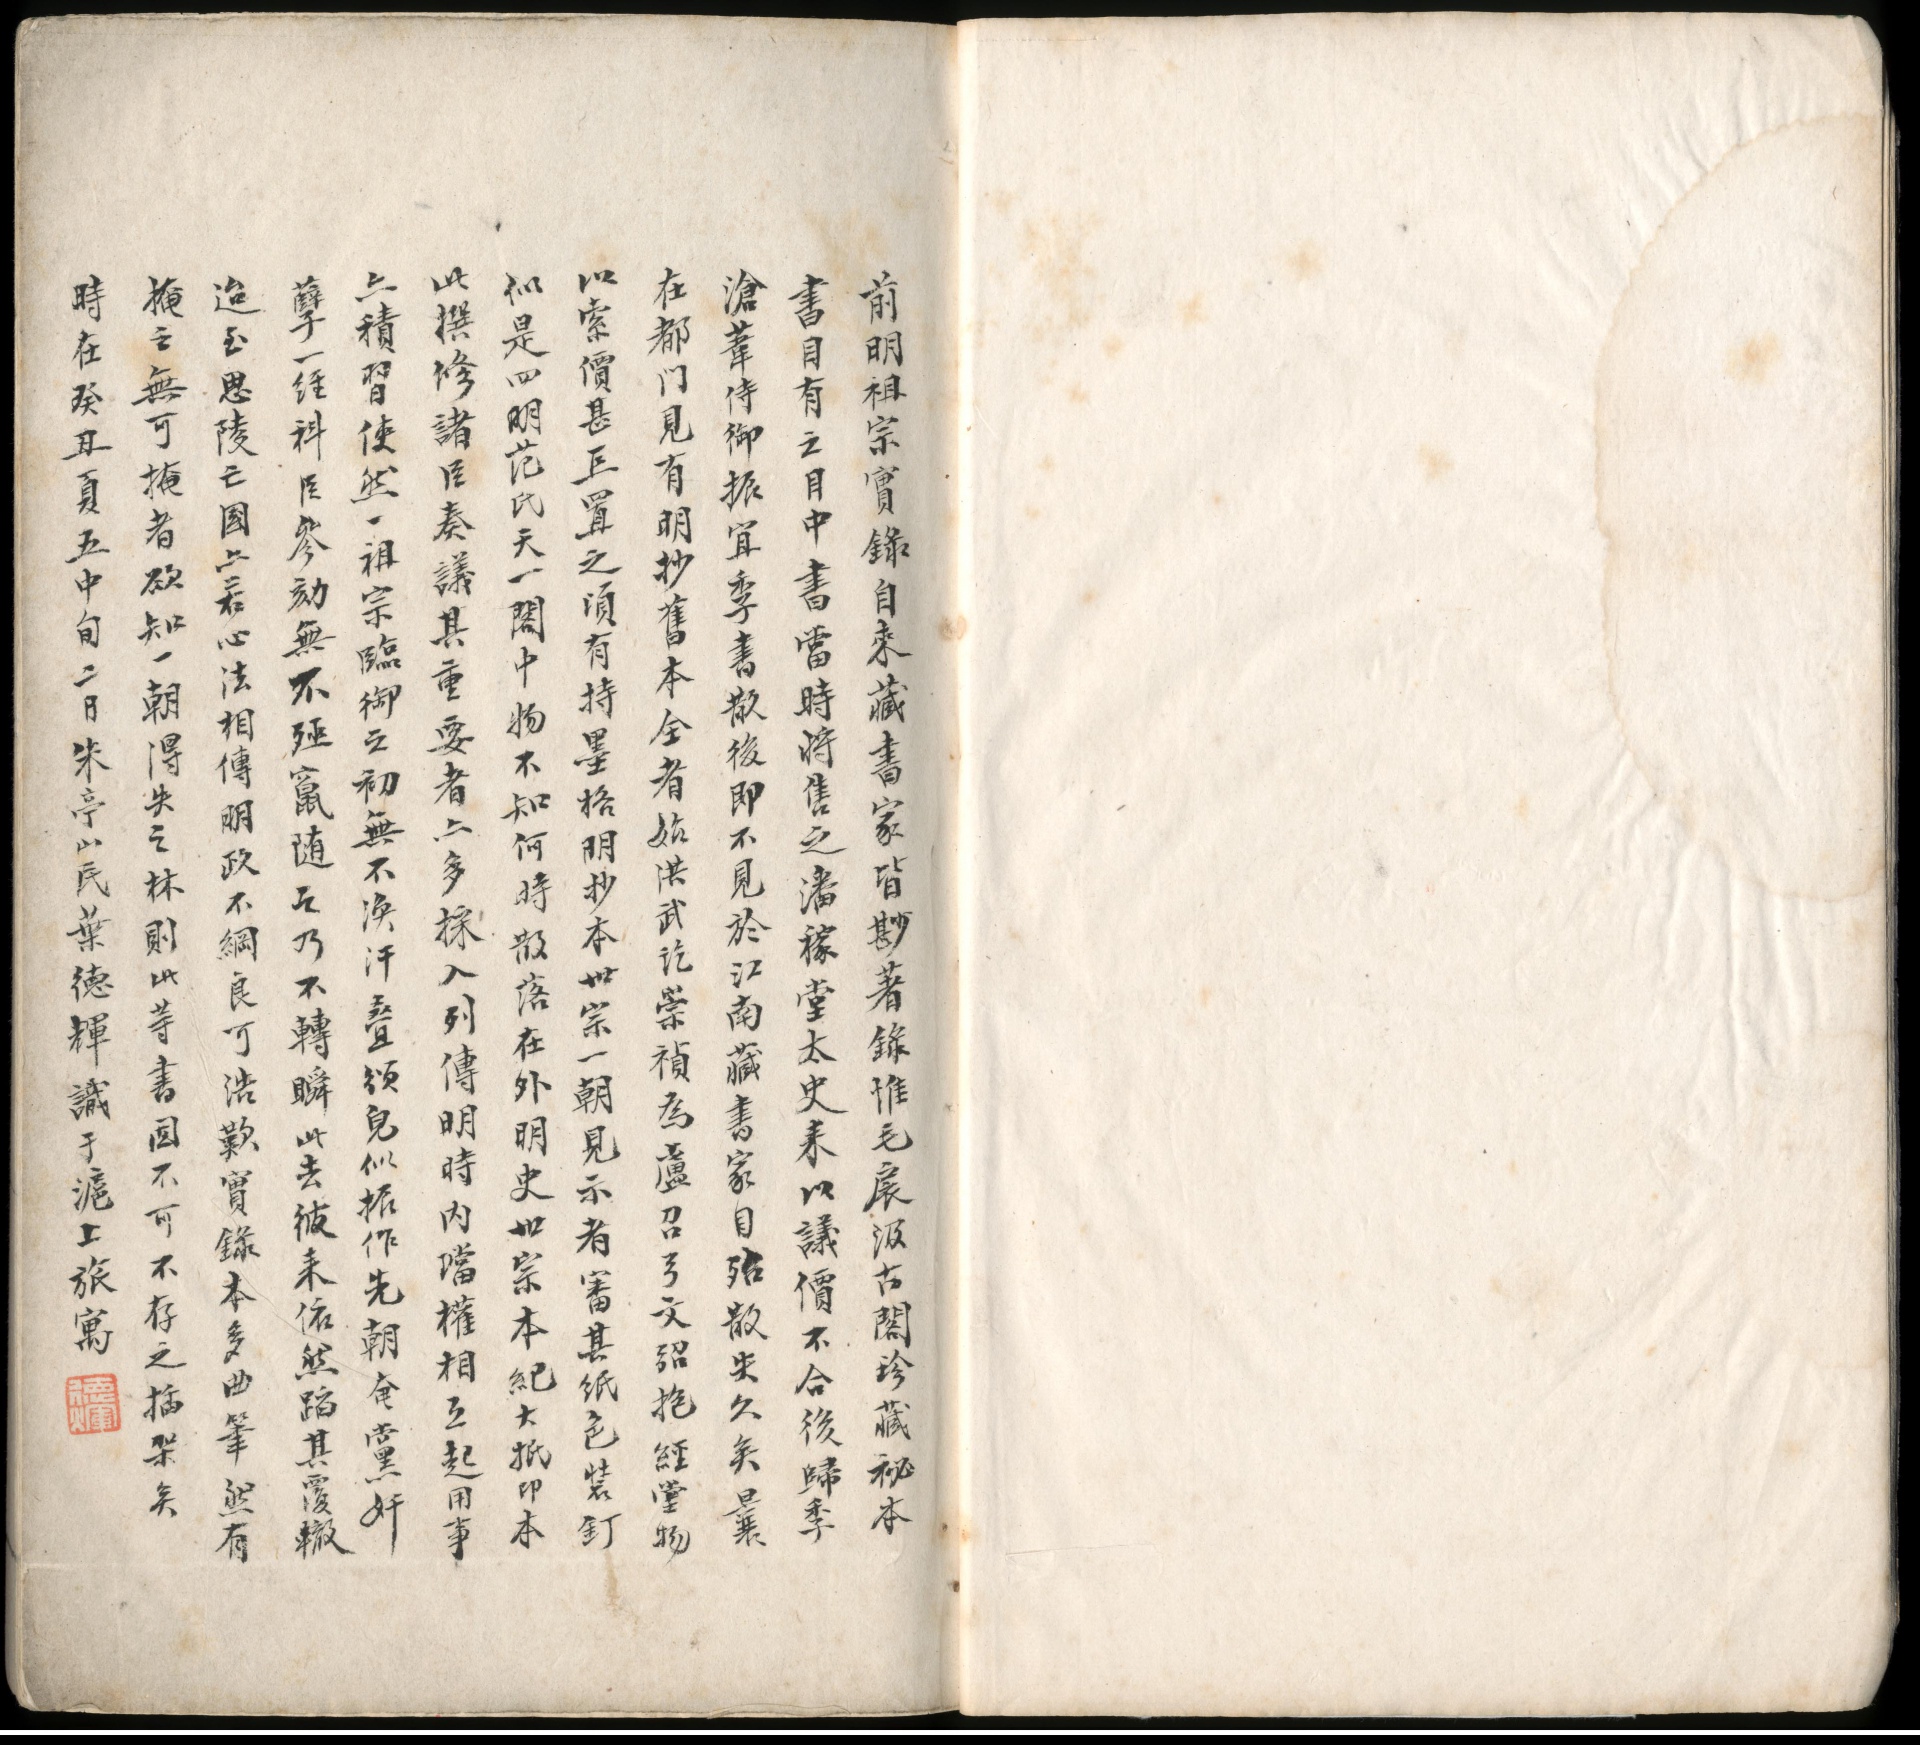 前明祖宗實錄自來藏書家皆尠著錄惟毛扆汲古閣珍藏祕本
書目有之目中書當時將售之潘稼堂太史耒以議價不合後歸季
滄葦侍御振宜季書散後即不見於江南藏書家目殆散失久矣曩
在都門見有明抄舊本全者始洪武訖崇禎為盧召弓文弨抱經堂物
以索價甚巨置之頃有持墨格明抄本世宗一朝見示者審其紙色裝釘
似是四明范氏天一閣中物不知何時散落在外明史世宗本紀大抵即本
此撰修諸臣奏議其重要者亦多採入列傳明時內璫權相互起用事
亦積習使然一祖宗臨御之初無不渙汗疊頒皃似振作先朝奄黨奸
孽一經科臣參劾無不殛竄隨之乃不轉瞬此去彼来依然蹈其覆轍
迨至思陵亡國亦若心法相傳明政不綱良可浩歎實錄本多曲筆然有
掩之無可掩者欲知一朝得失之林則此等書固不可不存之插架矣
時在癸丑夏五中旬二日朱亭山民葉德輝識于滬上旅寓
德輝